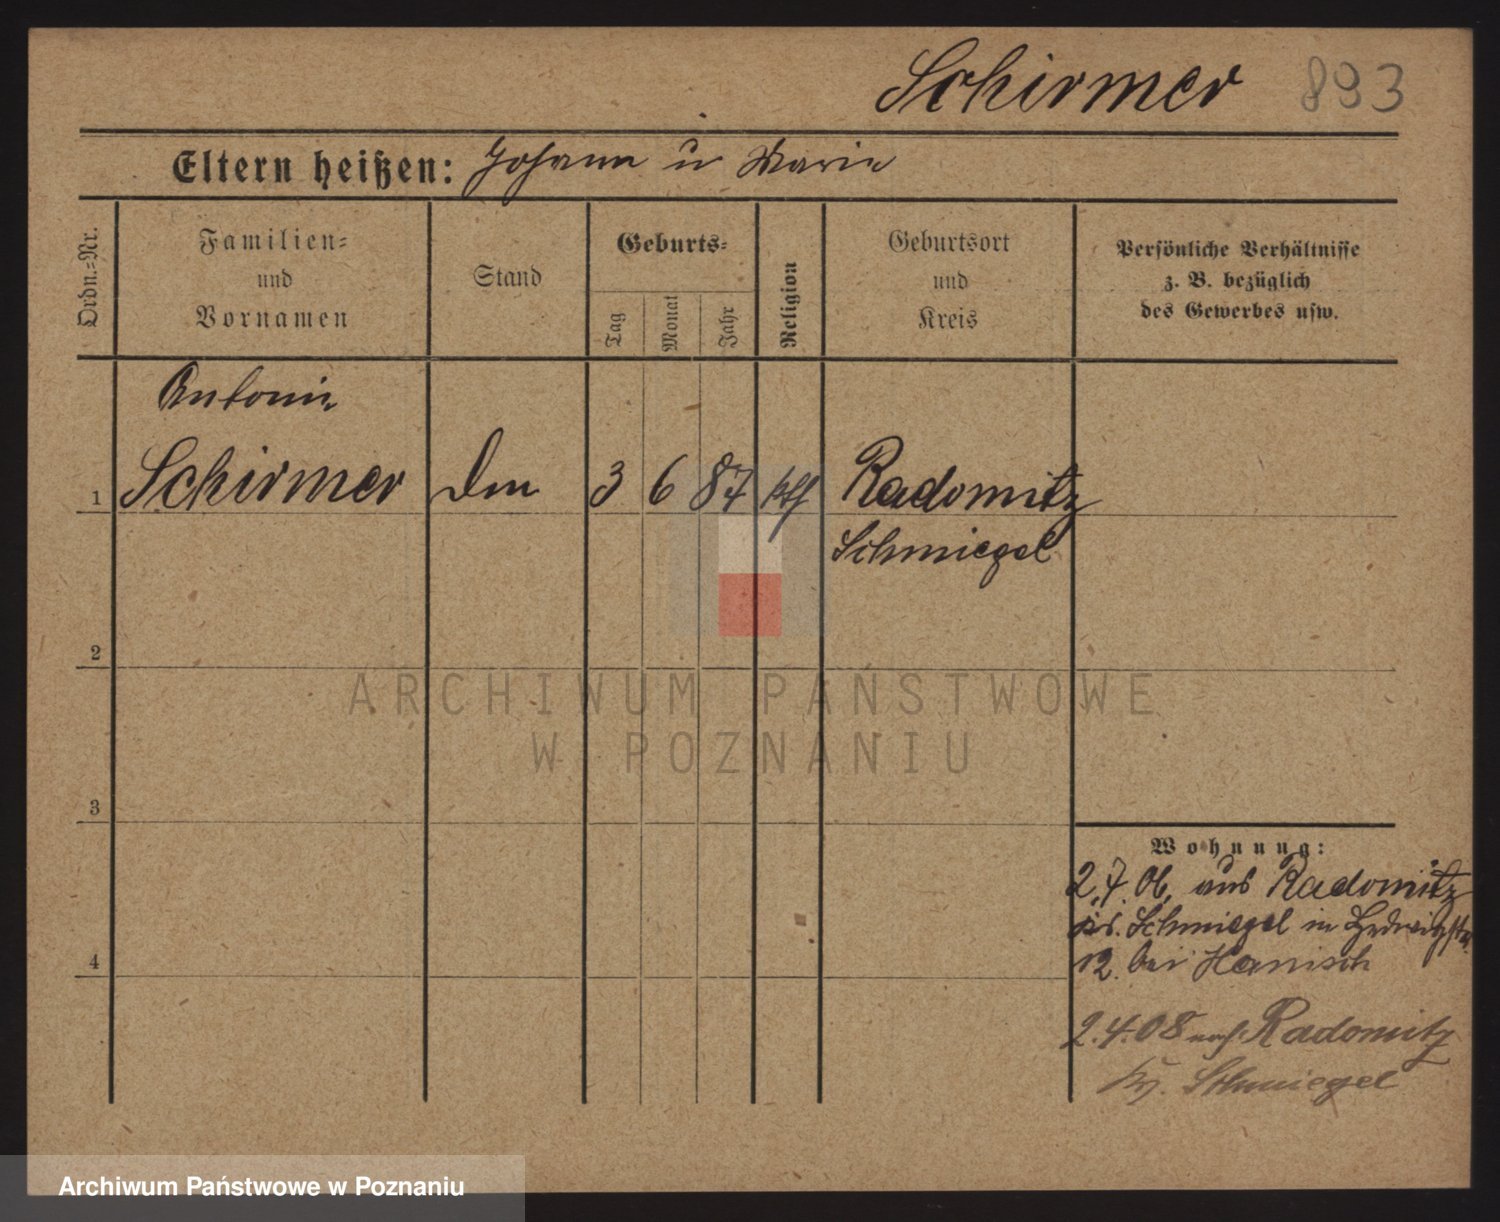 Schirmer 893
Eltern heißen: Johann u Marie
Ordn.=Nr.
Familien=
und
Vornamen
Stand
Geburts=
Tag
Monat
Jahr
Religion
Geburtsort
und
Kreis
Persönliche Verhältnisse
z. B. bezüglich
des Gewerbes usw.
Antonie
1 Schirmer 3 6 87 kth Radomitz
Schmiegel
2
3
4
Wohnung:
2.7.06. aus Radomitz
Kr. Schmiegel in Hedwigstr.
12. bei Hanisch
2.4.08 nach Radomitz
Kr. Schmiegel
ARCHIWUM PAŃSTWOWE
W POZNANIU
Archiwum Państwowe w Poznaniu